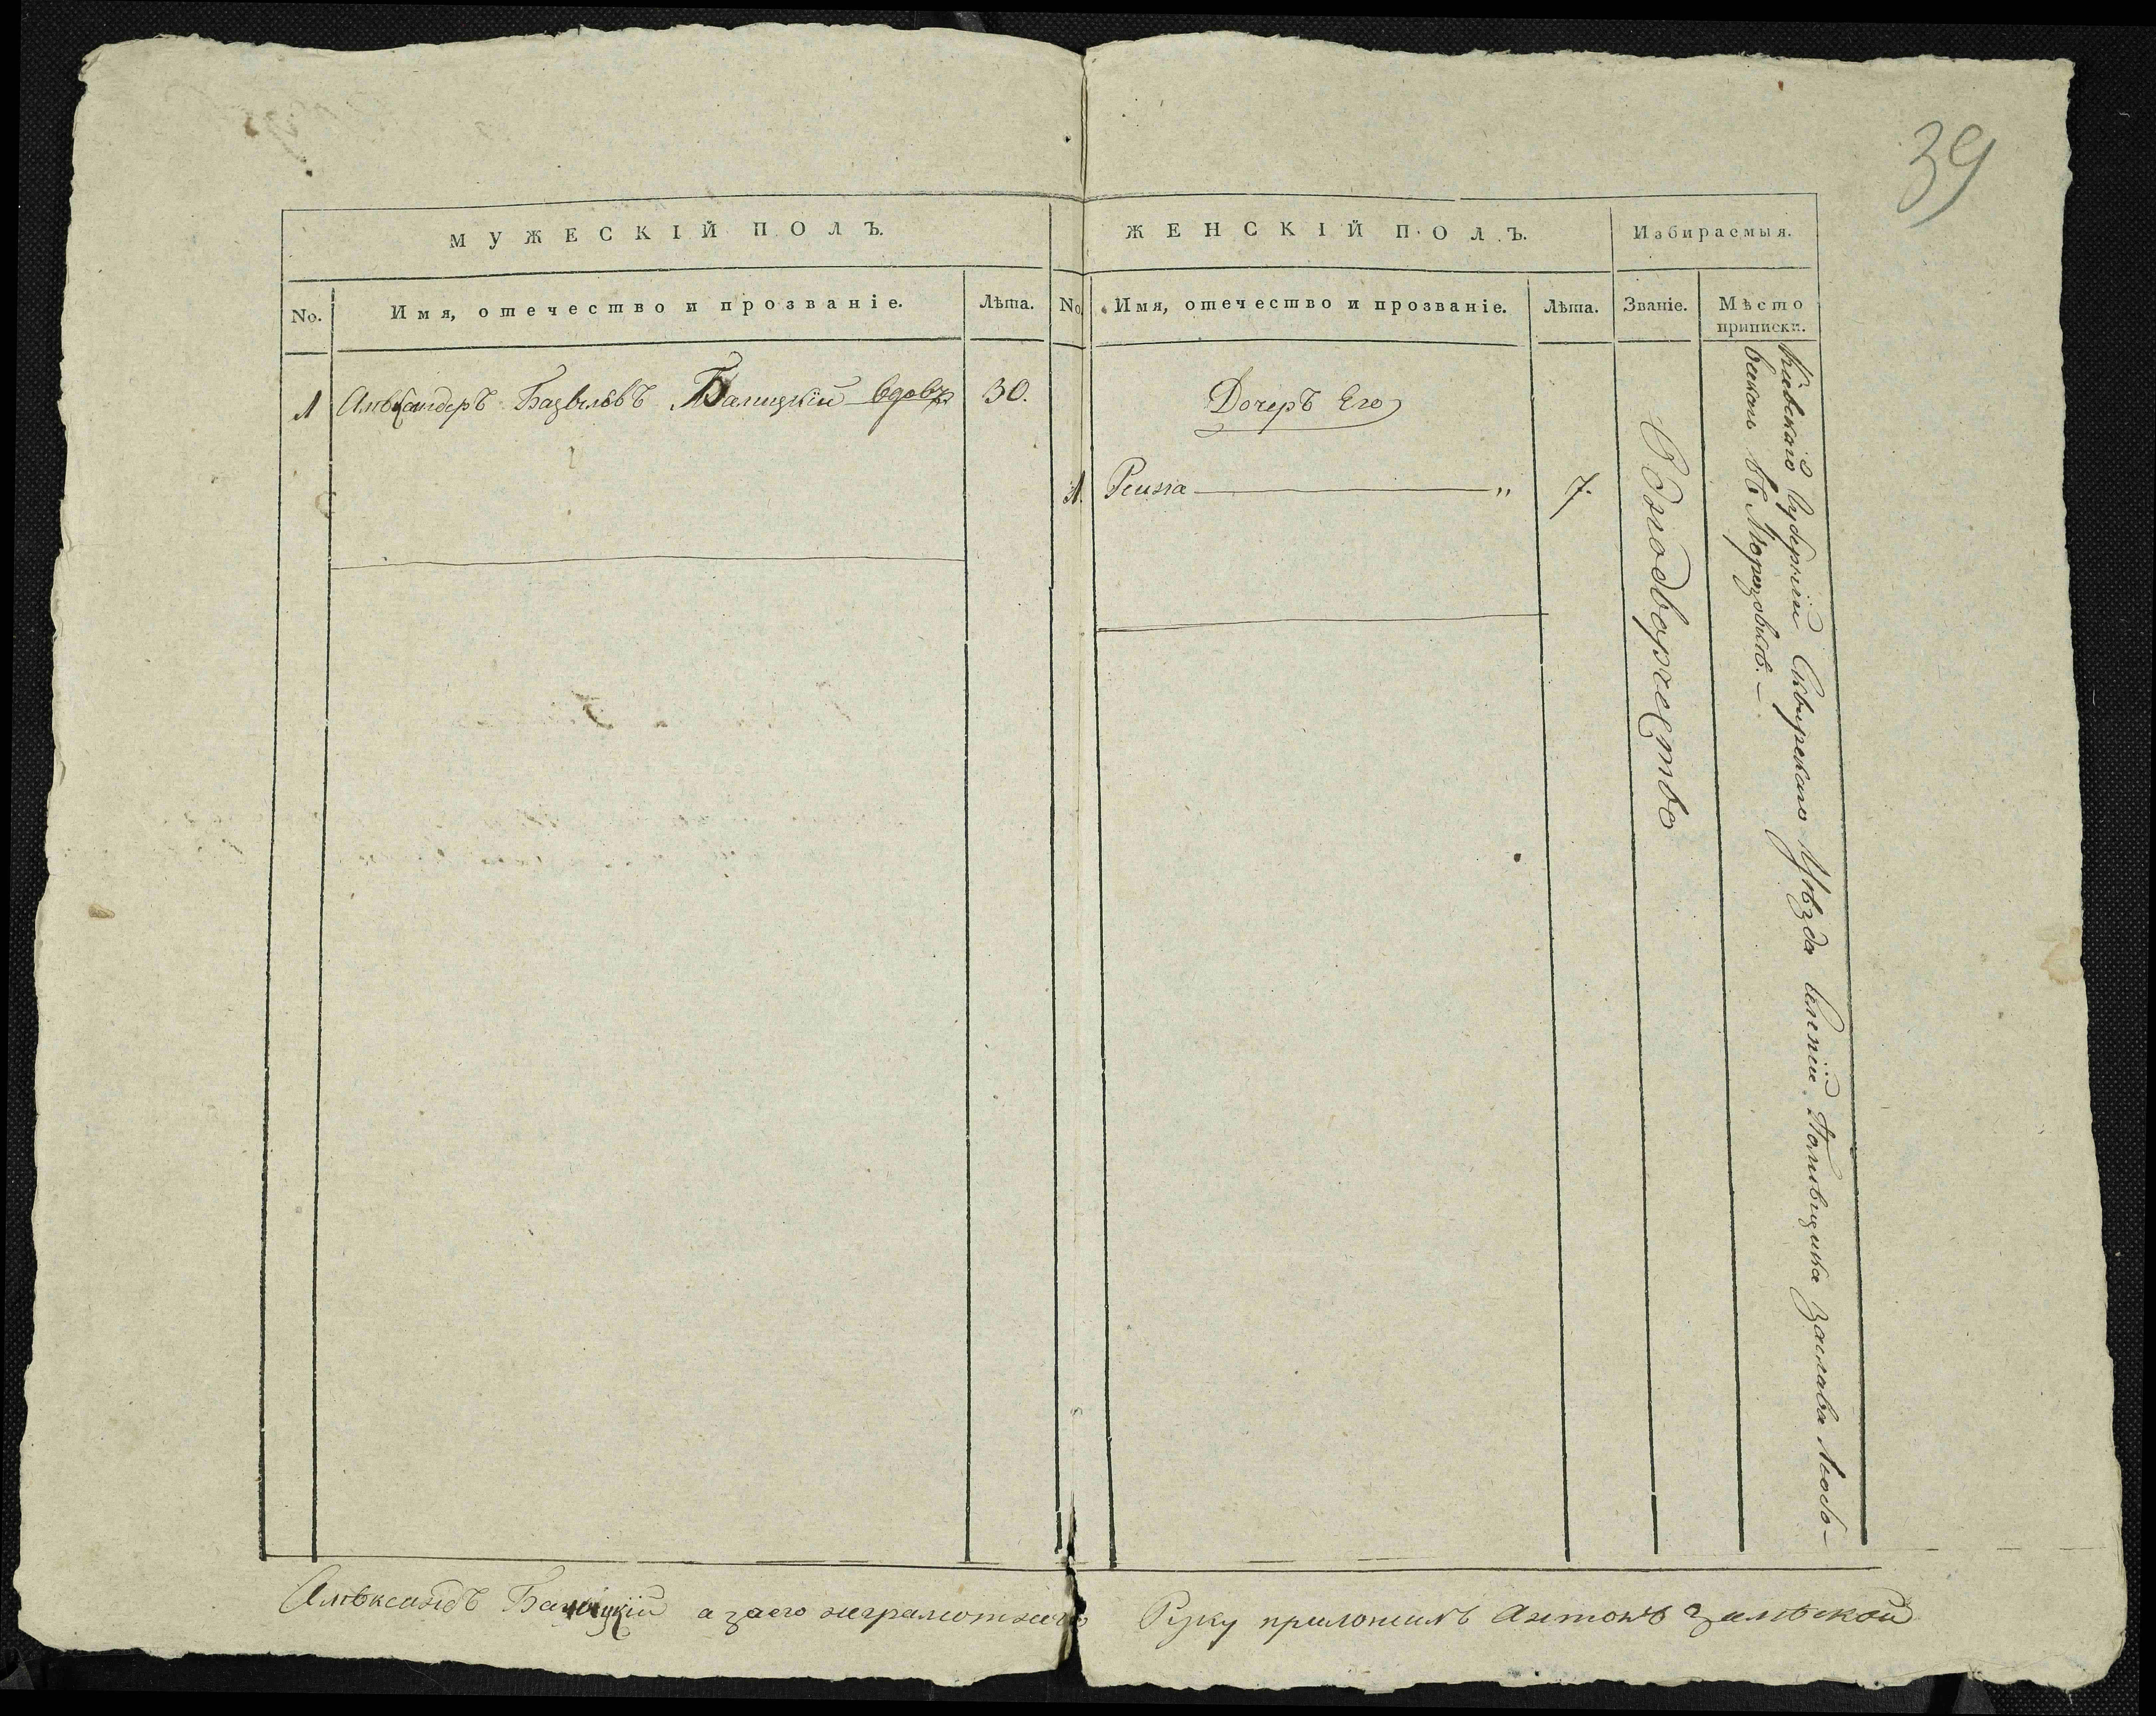 39
МУЖЕСКІЙ ПОЛЪ.
ЖЕНСКІЙ ПОЛЪ.
Избираемыя.
No.
Имя, отечество и прозваніе.
Лѣта.
No.
Имя, отечество и прозваніе.
Лѣта.
Званіе.
Мѣсто
приписки.
1 Алѣксандеръ Базылѣвъ Балицкій вдовъ 30.
Дочеръ Его
1. 7.
Однодворчество
Кіевской Губерніи Сквирскаго Уѣзда Имѣніи Помѣщика Заслава
въ Морозовкѣ.
Алѣксандъ Балицкій а заего неграмотнаго Руку приложилъ Антонъ Залѣской